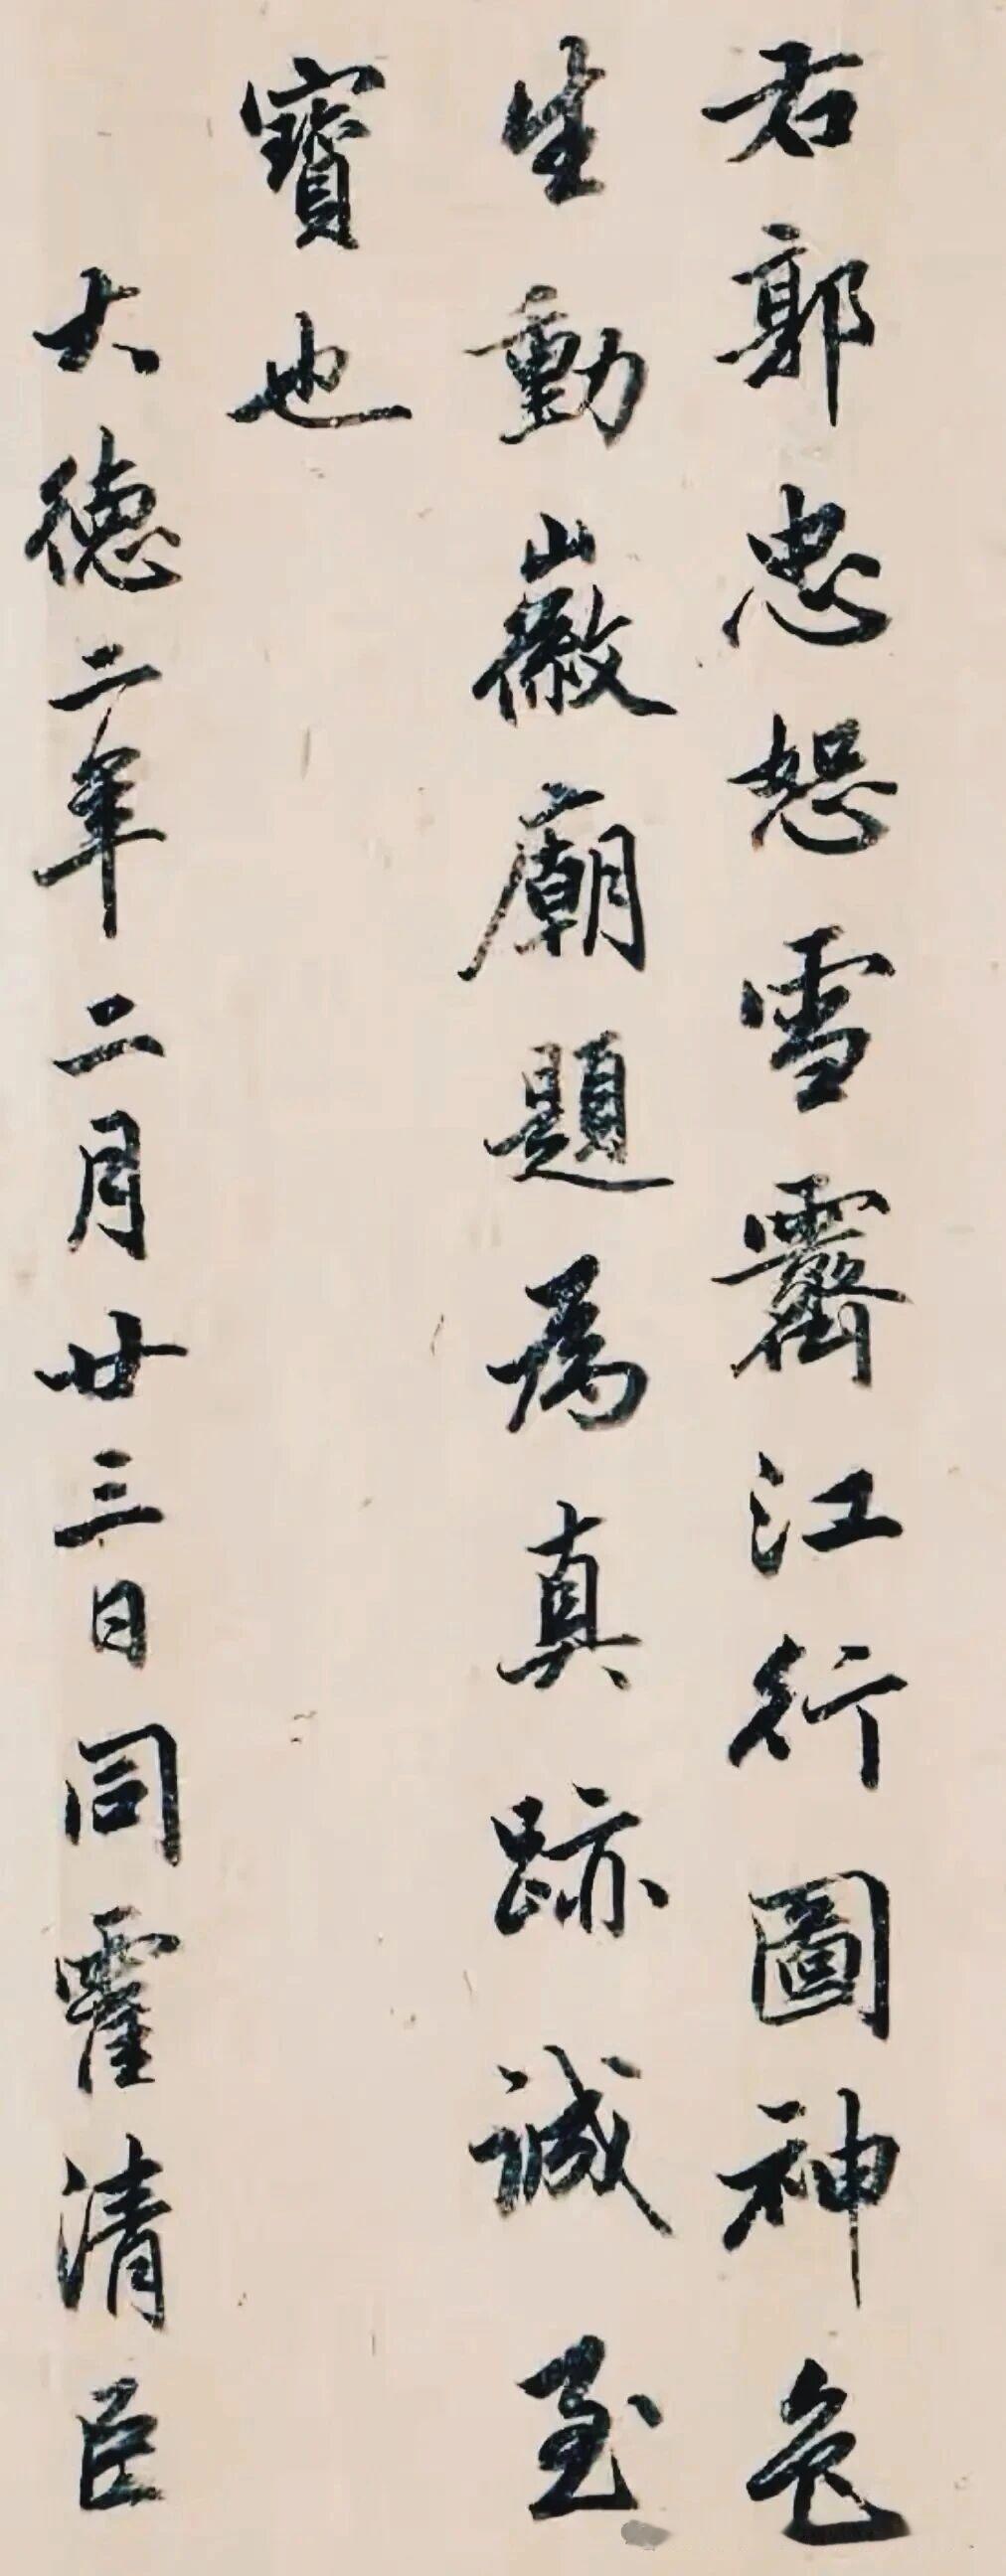 右郭忠恕雪霽江行圖神色
生動徽廟題為真跡誠至
寶也
大德二年二月廿三日同霍清臣